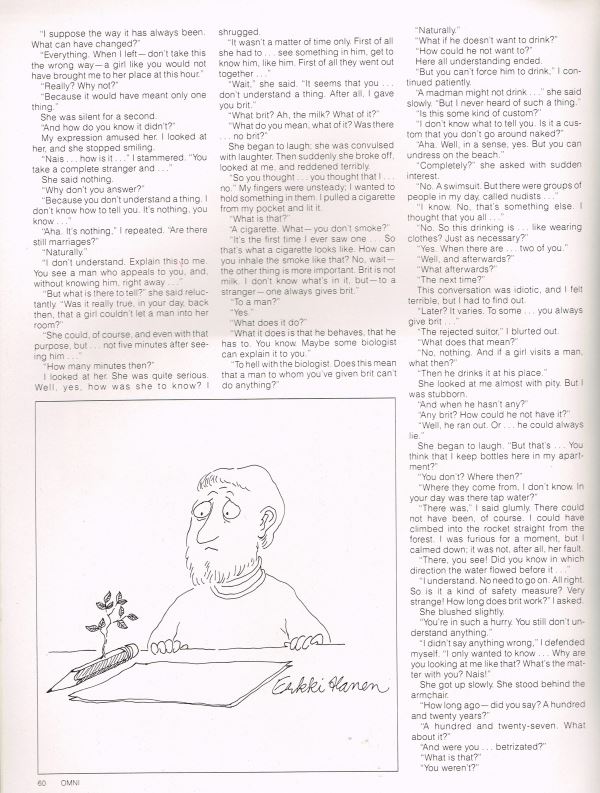 "I suppose the way it has always been.
What can have changed?"
"Everything. When I left—don't take this
the wrong way—a girl like you would not
have brought me to her place at this hour."
"Really? Why not?"
"Because it would have meant only one
thing."
She was silent for a second.
"And how do you know it didn't?"
My expression amused her. I looked at
her, and she stopped smiling.
"Nais . . . how is it . . ." I stammered. "You
take a complete stranger and . . ."
She said nothing.
"Why don't you answer?"
"Because you don't understand a thing. I
don't know how to tell you. It's nothing, you
know . . ."
"Aha. It's nothing," I repeated. "Are there
still marriages?"
"Naturally."
"I don't understand. Explain this to me.
You see a man who appeals to you, and,
without knowing him, right away . . ."
"But what is there to tell?" she said reluc-
tantly. "Was it really true, in your day, back
then, that a girl couldn't let a man into her
room?"
"She could, of course, and even with that
purpose, but . . . not five minutes after see-
ing him . . ."
"How many minutes then?"
I looked at her. She was quite serious.
Well, yes, how was she to know? I
shrugged.
"It wasn't a matter of time only. First of all
she had to . . . see something in him, get to
know him, like him. First of all they went out
together . . ."
"Wait," she said. "It seems that you . . .
don't understand a thing. After all, I gave
you brit."
"What brit? Ah, the milk? What of it?"
"What do you mean, what of it? Was there
. . . no brit?"
She began to laugh; she was convulsed
with laughter. Then suddenly she broke off,
looked at me, and reddened terribly.
"So you thought . . . you thought that I . . .
no." My fingers were unsteady; I wanted to
hold something in them. I pulled a cigarette
from my pocket and lit it.
"What is that?"
"A cigarette. What—you don't smoke?"
"It's the first time I ever saw one . . . So
that's what a cigarette looks like. How can
you inhale the smoke like that? No, wait—
the other thing is more important. Brit is not
milk. I don't know what's in it, but—to a
stranger—one always gives brit."
"To a man?"
"Yes."
"What does it do?"
"What it does is that he behaves, that he
has to. You know. Maybe some biologist
can explain it to you."
"To hell with the biologist. Does this mean
that a man to whom you've given brit can't
do anything?"
"Naturally."
"What if he doesn't want to drink?"
"How could he not want to?"
Here all understanding ended.
"But you can't force him to drink," I con-
tinued patiently.
"A madman might not drink . . ." she said
slowly. "But I never heard of such a thing."
"Is this some kind of custom?"
"I don't know what to tell you. Is it a cus-
tom that you don't go around naked?"
"Aha. Well, in a sense, yes. But you can
undress on the beach."
"Completely?" she asked with sudden
interest.
"No. A swimsuit. But there were groups of
people in my day, called nudists . . ."
"I know. No, that's something else. I
thought that you all . . ."
"No. So this drinking is . . . like wearing
clothes? Just as necessary?"
"Yes. When there are . . . two of you."
"Well, and afterwards?"
"What afterwards?"
"The next time?"
This conversation was idiotic, and I felt
terrible, but I had to find out.
"Later? It varies. To some . . . you always
give brit . . ."
"The rejected suitor," I blurted out.
"What does that mean?"
"No, nothing. And if a girl visits a man,
what then?"
"Then he drinks it at his place."
She looked at me almost with pity. But I
was stubborn.
"And when he hasn't any?"
"Any brit? How could he not have it?"
"Well, he ran out. Or . . . he could always
lie."
She began to laugh. "But that's . . . You
think that I keep bottles here in my apart-
ment?"
"You don't? Where then?"
"Where they come from, I don't know. In
your day was there tap water?"
"There was," I said glumly. There could
not have been, of course. I could have
climbed into the rocket straight from the
forest. I was furious for a moment, but I
calmed down; it was not, after all, her fault.
"There, you see! Did you know in which
direction the water flowed before it . . ."
"I understand. No need to go on. All right.
So is it a kind of safety measure? Very
strange! How long does brit work?" I asked.
She blushed slightly.
"You're in such a hurry. You still don't un-
derstand anything."
"I didn't say anything wrong," I defended
myself. "I only wanted to know . . . Why are
you looking at me like that? What's the mat-
ter with you? Nais!"
She got up slowly. She stood behind the
armchair.
"How long ago—did you say? A hundred
and twenty years?"
"A hundred and twenty-seven. What
about it?"
"And were you . . . betrizated?"
"What is that?"
"You weren't?"
Erkki Alanen
60 OMNI